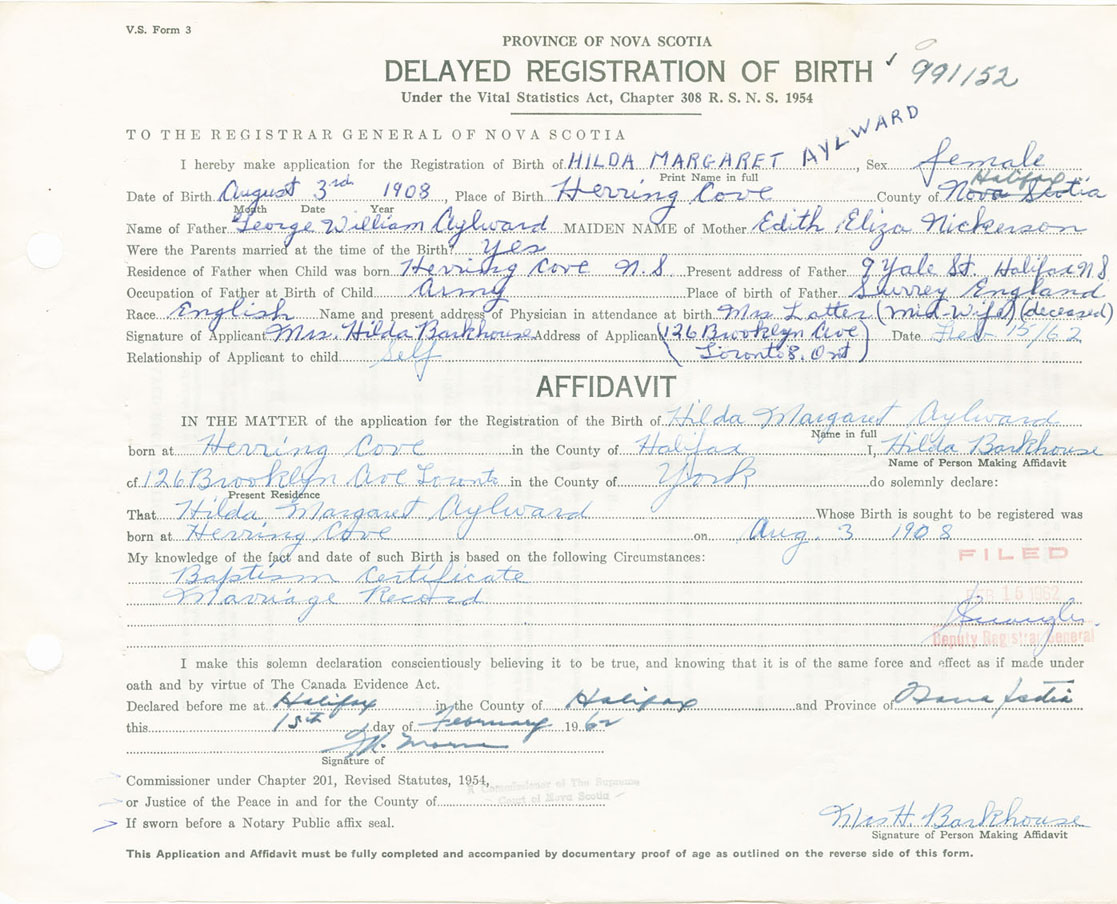 V.S. Form 3
PROVINCE OF NOVA SCOTIA
DELAYED REGISTRATION OF BIRTH ✓ 991152
Under the Vital Statistics Act, Chapter 308 R. S. N. S. 1954
TO THE REGISTRAR GENERAL OF NOVA SCOTIA
I hereby make application for the Registration of Birth of HILDA MARGARET AYLWARD, Sex female
Print Name in full
Halifax
Date of Birth August 3rd 1908, Place of Birth Herring Cove County of Nova Scotia
Month Date Year
Name of Father George William Aylward MAIDEN NAME of Mother Edith Eliza Nickerson
Were the Parents married at the time of the Birth? Yes
Residence of Father when Child was born Herring Cove N.S. Present address of Father 9 Yale St. Halifax N S
Occupation of Father at Birth of Child Army Place of birth of Father Surrey England
Race English Name and present address of Physician in attendance at birth Mrs Latter (mid-wife) (deceased)
Signature of Applicant Mrs. Hilda Barkhouse Address of Applicant (126 Brooklyn Ave Date Feb 15/62
Relationship of Applicant to child Self Toronto 8. Ont)
AFFIDAVIT
IN THE MATTER of the application for the Registration of the Birth of Hilda Margaret Aylward
Name in full
born at Herring Cove in the County of Halifax I, Hilda Barkhouse
Name of Person Making Affidavit
of 126 Brooklyn Ave Toronto in the County of York do solemnly declare:
Present Residence
That Hilda Margaret Aylward Whose Birth is sought to be registered was
born at Herring Cove on Aug. 3 1908
My knowledge of the fact and date of such Birth is based on the following Circumstances:
FILED
Baptism Certificate
Marriage Record
FEB 16 1962
Deputy Registrar General
I make this solemn declaration conscientiously believing it to be true, and knowing that it is of the same force and effect as if made under
oath and by virtue of The Canada Evidence Act.
Declared before me at Halifax in the County of Halifax and Province of Nova Scotia
this 15th day of February 1962
Signature of
Commissioner under Chapter 201, Revised Statutes, 1954,
A Commissioner of The Supreme
Court of Nova Scotia
or Justice of the Peace in and for the County of
If sworn before a Notary Public affix seal.
Mrs H. Barkhouse
Signature of Person Making Affidavit
This Application and Affidavit must be fully completed and accompanied by documentary proof of age as outlined on the reverse side of this form.